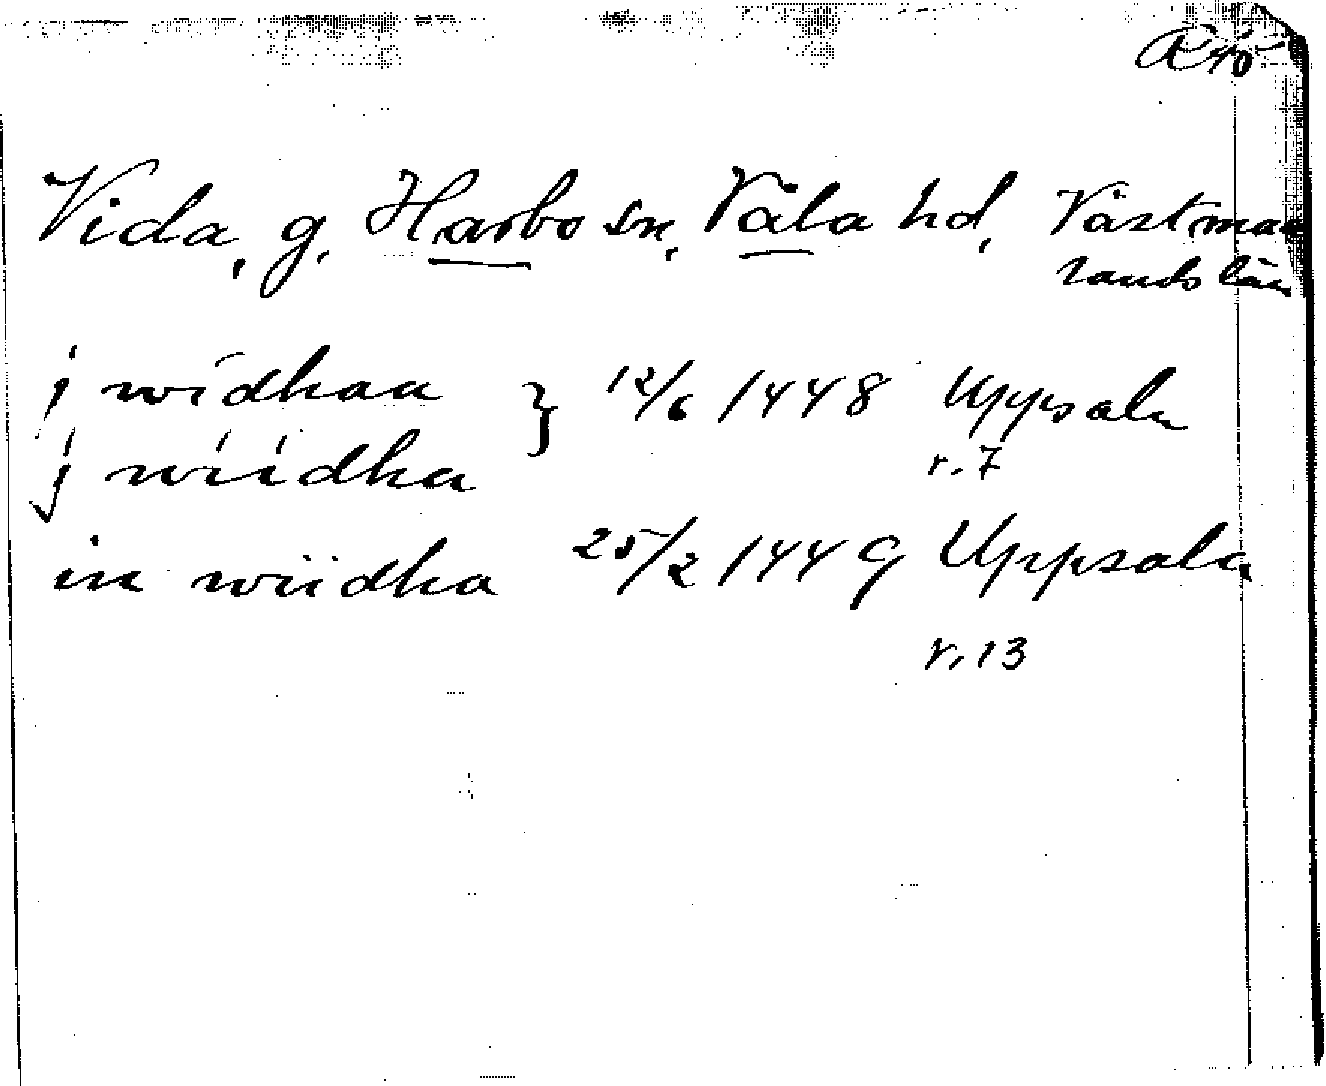 Vida, g, Harbo sn, Våla hd, Västman
lands län
j widhaa } 12/6 1448 Uppsala
j wiidha r. 7
in wiidha 25/2 1449 Uppsala
r. 13